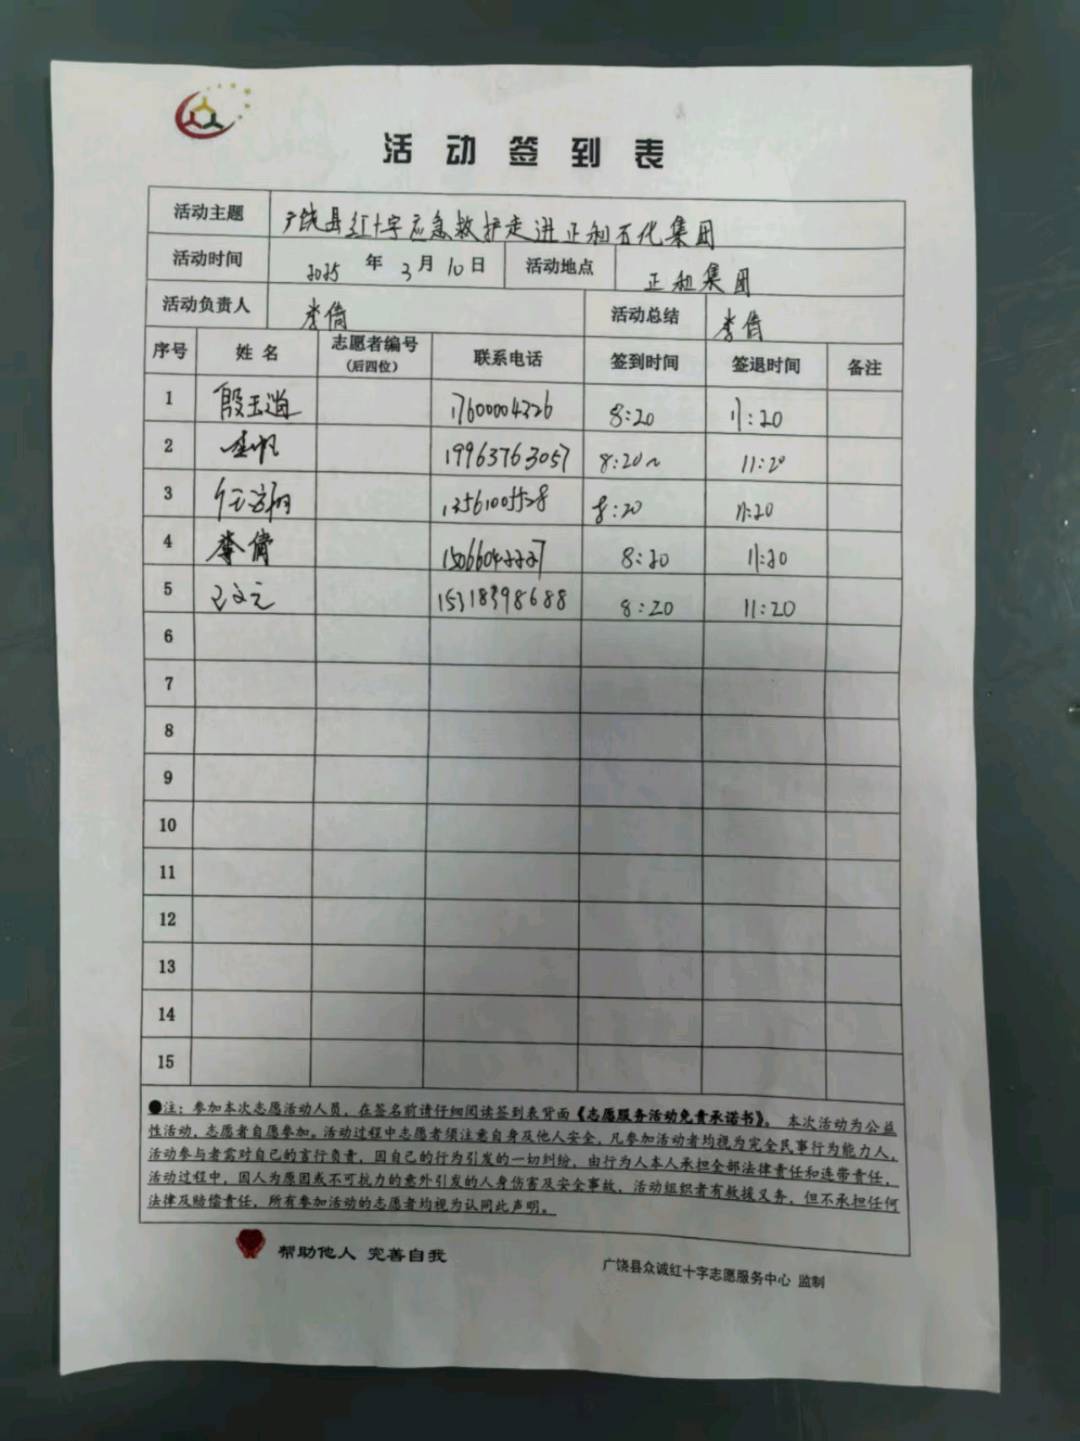 活动签到表
活动主题 广饶县红十字应急救护走进正和石化集团
活动时间 2025 年 3 月 10 日 活动地点 正和集团
活动负责人 李倩 活动总结 李倩
序号 姓名 志愿者编号 (后四位) 联系电话 签到时间 签退时间 备注
1 殷玉逍 17600004226 8:20 11:20
2 19963763057 8:20~ 11:20
3 13561005528 8:20 11:20
4 李倩 15066042227 8:20 11:20
5 15318398688 8:20 11:20
6
7
8
9
10
11
12
13
14
15
●注：参加本次志愿活动人员，在签名前请仔细阅读签到表背面《志愿服务活动免责承诺书》。本次活动为公益
性活动，志愿者自愿参加。活动过程中志愿者须注意自身及他人安全，凡参加活动者均视为完全民事行为能力人，
活动参与者需对自己的言行负责，因自己的行为引发的一切纠纷，由行为人本人承担全部法律责任和连带责任，
活动过程中，因人为原因或不可抗力的意外引发的人身伤害及安全事故，活动组织者有救援义务，但不承担任何
法律及赔偿责任，所有参加活动的志愿者均视为认同此声明。
帮助他人 完善自我
广饶县众诚红十字志愿服务中心 监制